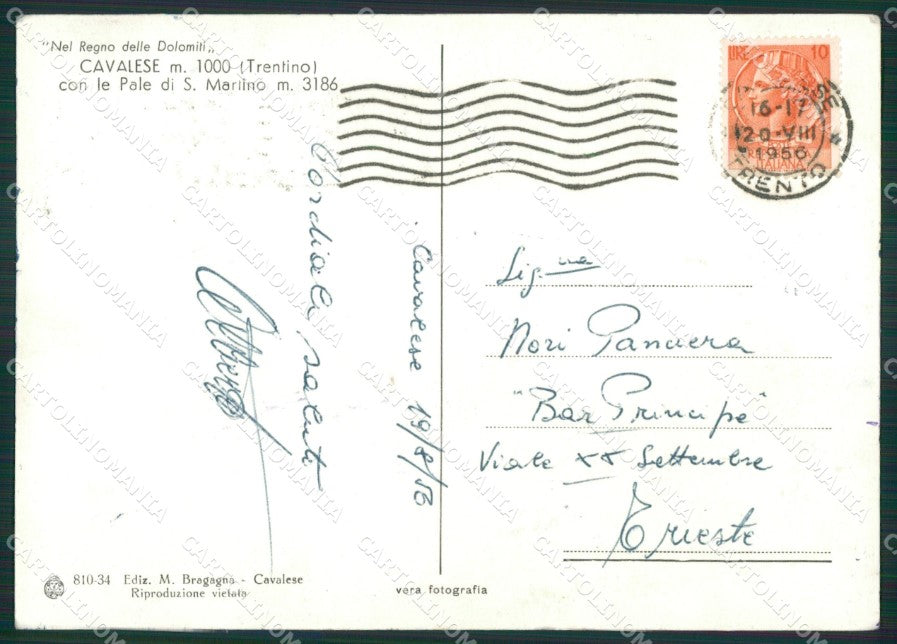 "Nel Regno delle Dolomiti„
CAVALESE m. 1000 (Trentino)
con le Pale di S. Martino m. 3186
LIRE 10
16-17
20-VIII
1956
TRENTO
ITALIANA
Cordiali saluti
Cavalese 19/8/56
Sig.na
Nori
"Bar Principe"
Viale XX Settembre
Trieste
810-34 Ediz. M. Bragagna - Cavalese
Riproduzione vietata
vera fotografia
CARTOLINOMANIA